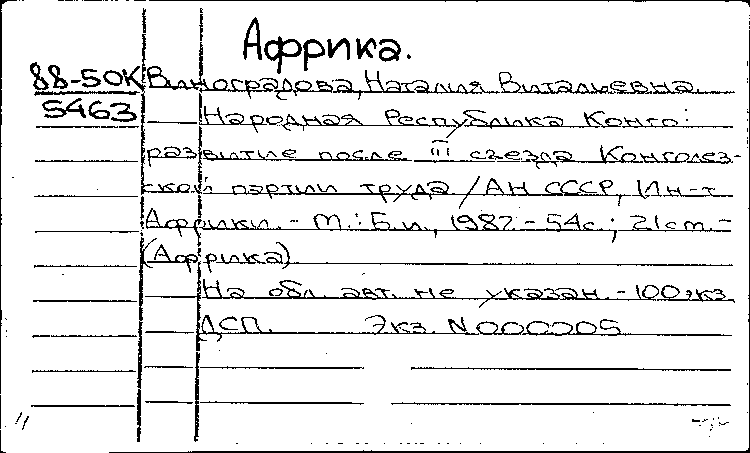 Африка.
88-50К Виноградова, Наталия Витальевна.
5463 Народная Республика Конго:
развитие после III съезда Конголез-
ской партии труда / АН СССР, Ин-т
Африки. - М.: Б.и., 1987. - 54с.; 21cm. -
(Африка)
На обл. авт. не указан. - 100 экз.
ДСП. Экз. N000005